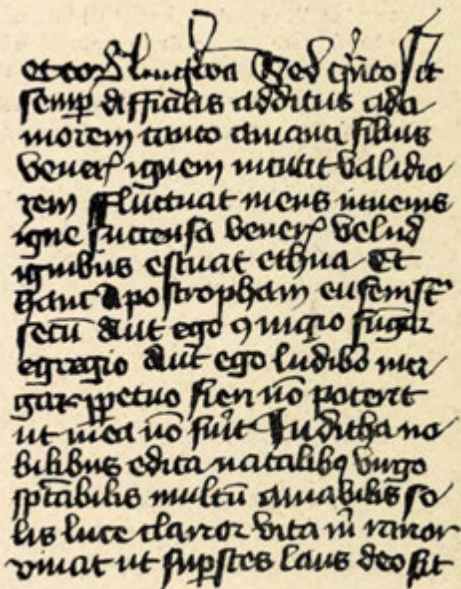 Sed qn̄to sit
semp̲ difficilis additus ad a
morem tanto amanti filius
vener̄ ignem incutit validio
rem Fluctuat mens iuvenis
igne succensa vener̄ velud
ignibus estuat ethna Et
hanc apostropham
secū Aut ego ꝯiugio fungar
egregio aut ego ludibo mer
gar ꝑpetuo fieri nō poterit
ut mea nō fuīt Juditha no
bilibus edita natalibꝫ virgo
sp̄tabilis multū amabilis so
lis luce clarior vita m̄ carior
vivat ut suꝑstes laus deo sit